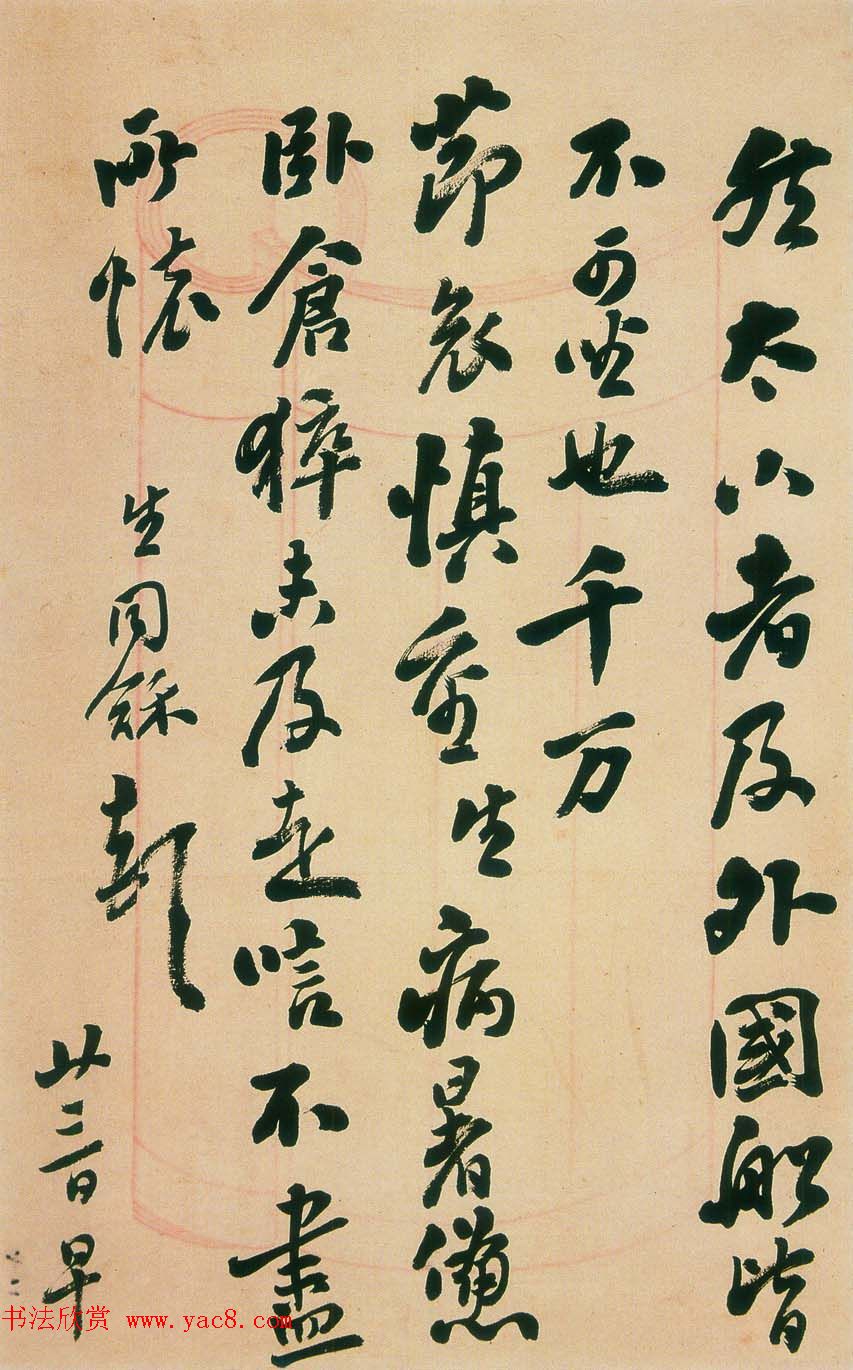 然太小者及外國船皆
不可坐也千万
節哀慎重生病暑憊
卧倉猝未及走唁不盡
所懷
生同龢頓
廿三日早
书法欣赏 www.yac8.com